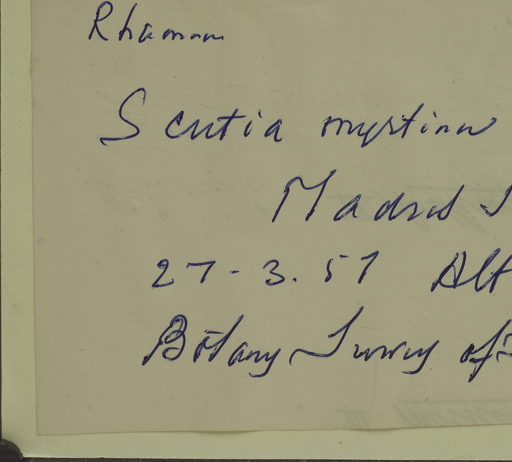 Rhamnn
Scutia myrtina
Madras S
27-3.57 Alt
Botany Survey of